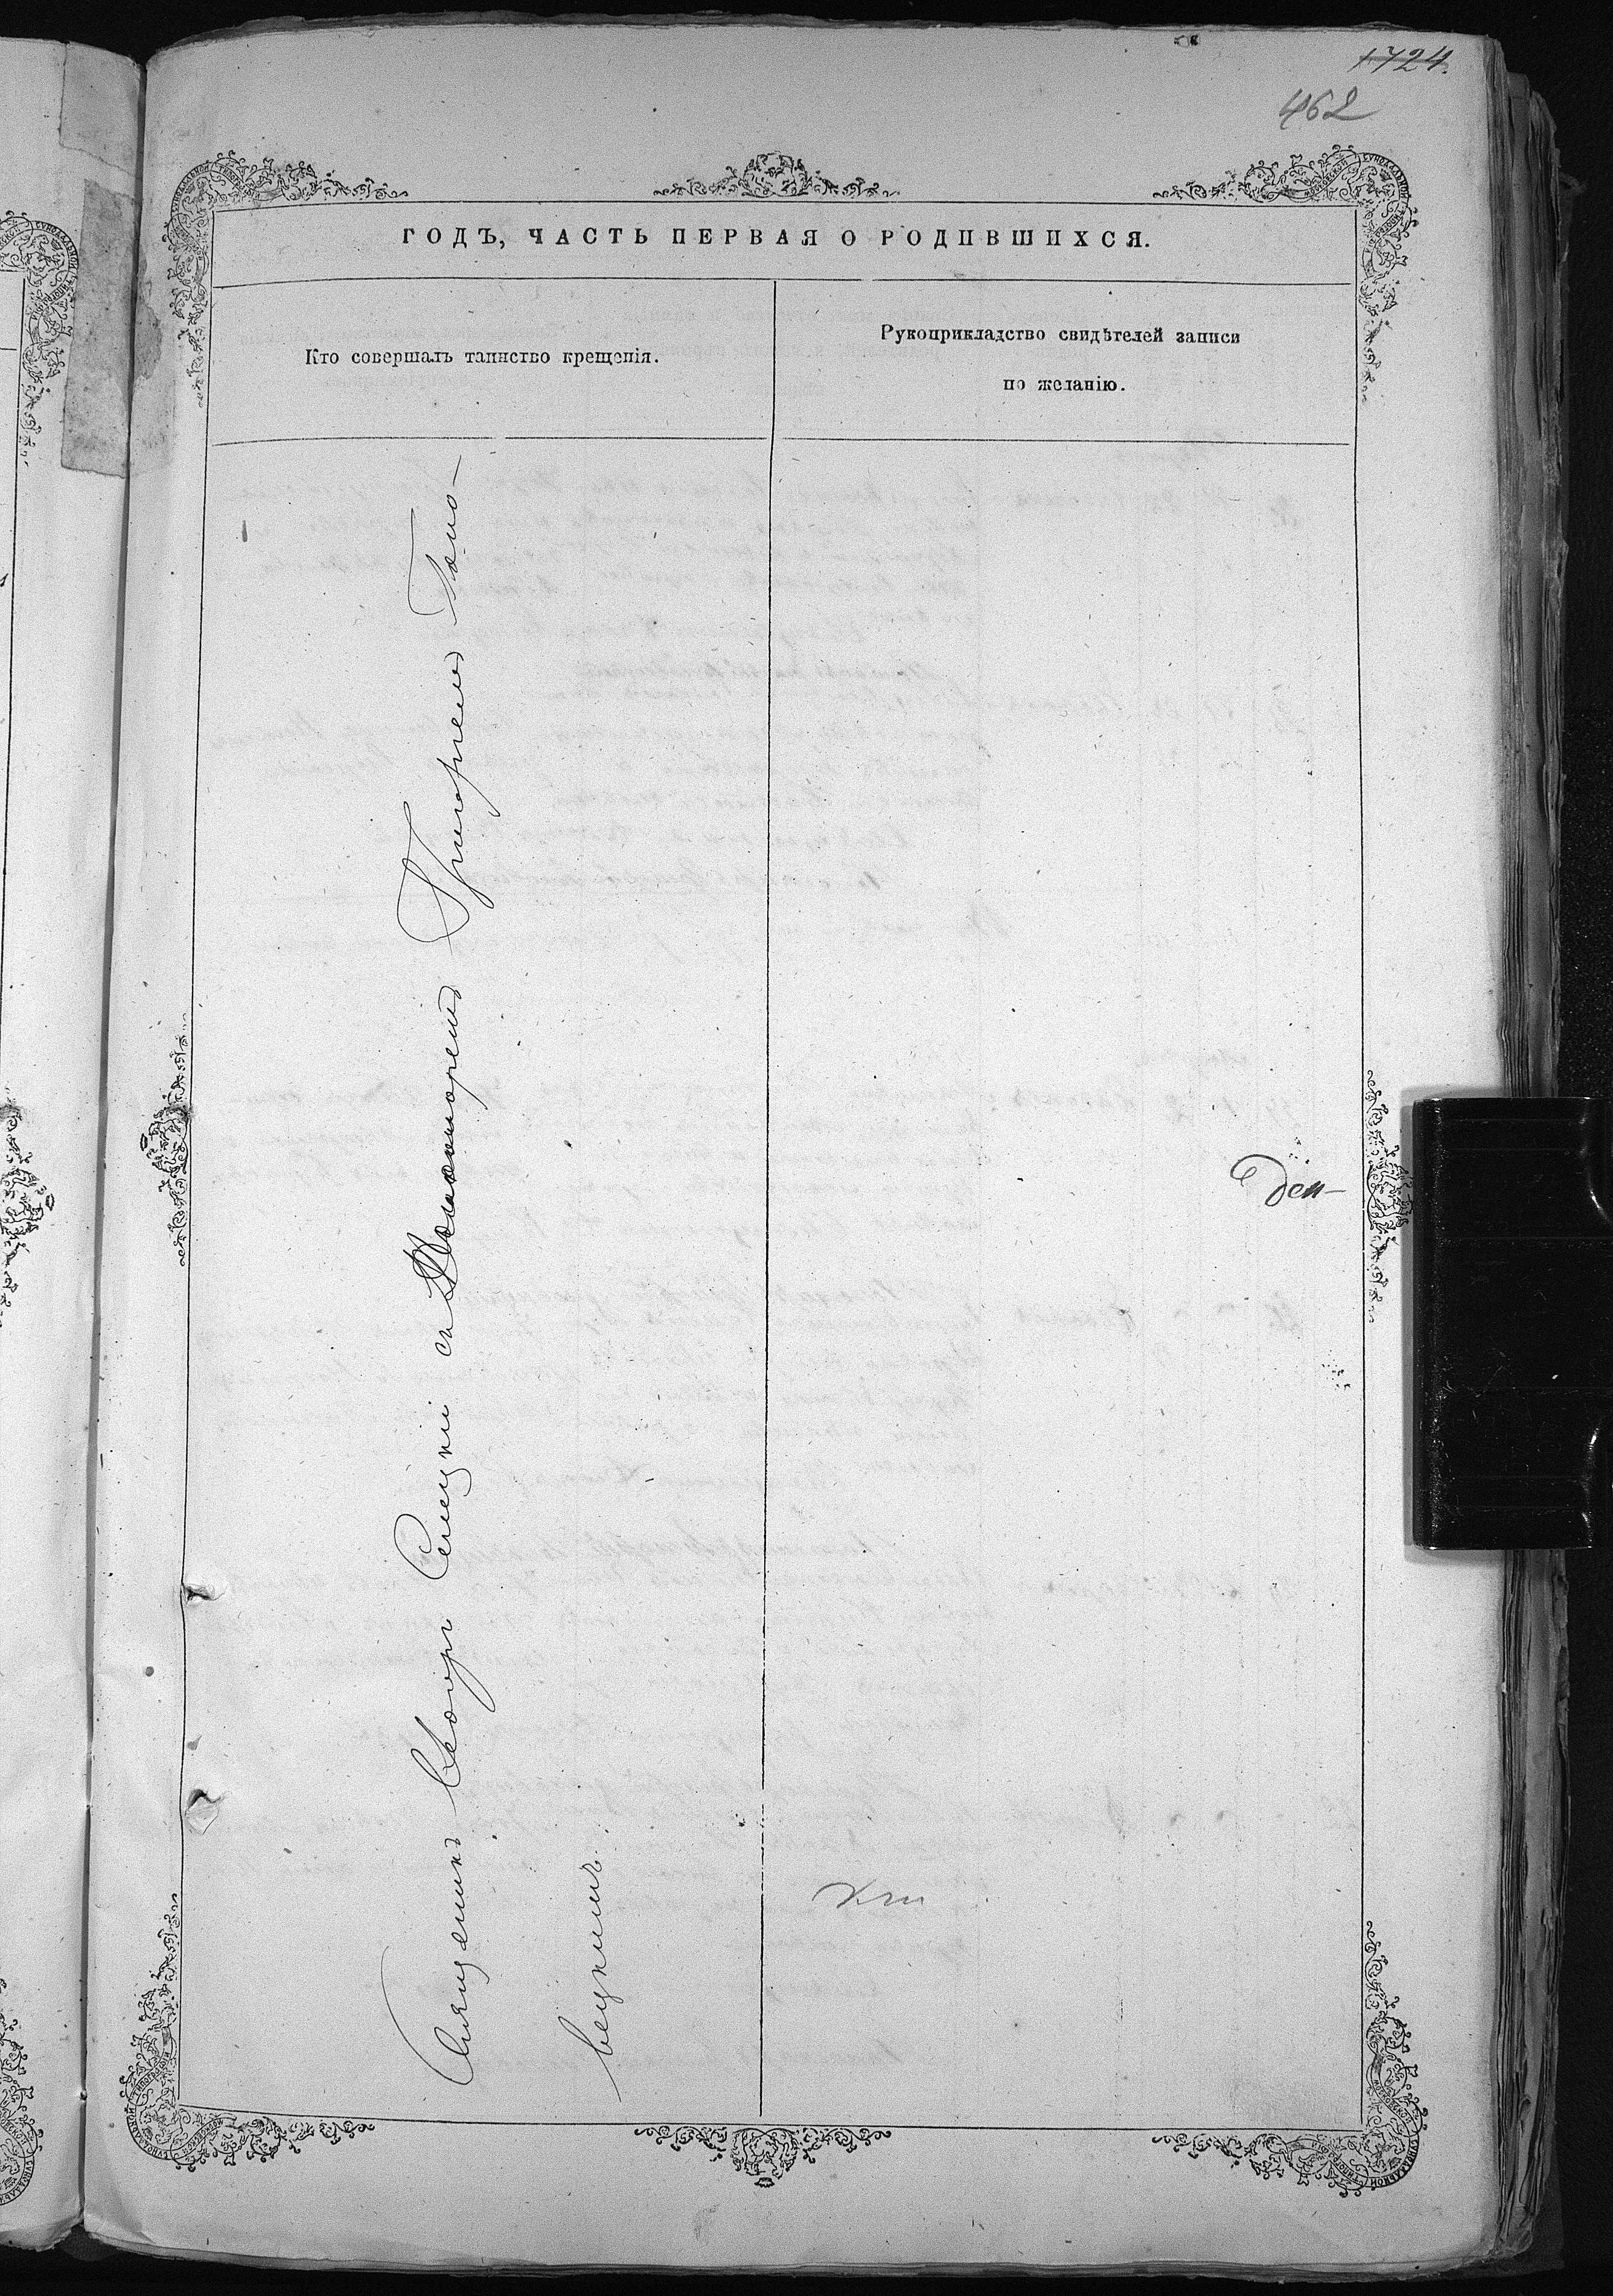 1724.
462
ГОДЪ, ЧАСТЬ ПЕРВАЯ О РОДИВШИХСЯ.
Кто совершалъ таинство крещенія.
Рукоприкладство свидѣтелей записи
по желанію.
Священникъ Ѳеодоръ Селецкій съ Пономоремъ Григоріемъ Голо-
вецкимъ.